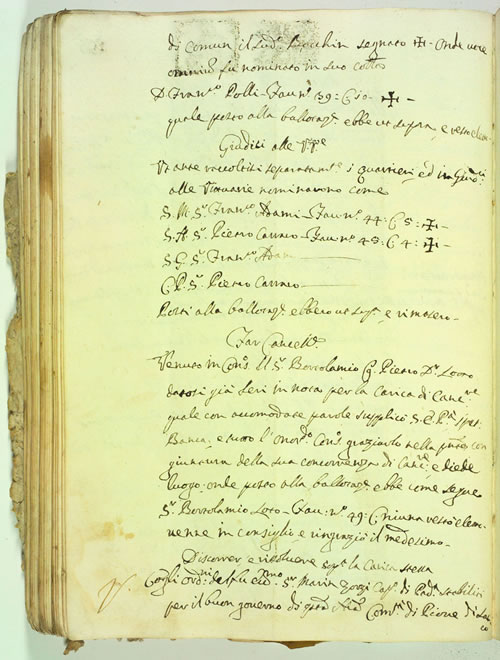 di comun il sud.º Zocchin segnato ✠ Onde vere
fu nominato in suo
D. Fran.co Polli - Fau.ri nº 39: C 10 - ✠ -
quale posto alla ballotaz.e ebbe ut supra, e restò elem-
Giudici alle
separatam.te i quarrieri ed in
alle nominarono come
S. M. S.r Fran.co Adami - Fau.ri nº 44: C 5: ✠ -
S. A. S.r Pietro Carraro - Fau.ri nº 43: C 4: ✠ -
S. G. S.r Fran.co Adam
C. P. S.r Pietro Carraro -
Posti alla ballotaz.e ebbero ut sup.a e rimasero -
Far Cancell.e
Venuto in Cons.o il S.r Bortolamio q. Pietro D.r Loro
datosi già ieri in nota per la carica di Canc.re
quale con accomodate parole supplicò S. E. P.tà
Banca, e tutto l'onor.do Cons.o graziarlo nella con
giuntura della sua concorrenza di Canc.re e diede
luogo, onde posto alla ballotaz.e ebbe come segue
S.r Bortolamio Loro - Fau: nº 49: C niuna restò elem-
venne in consiglio e ringraziò il medesimo -
Discorrer e risolvere sop.a la Carica stessa
Cogli ord.ni S.r Marin Zorzi Cap.º di Pad.a stabiliti
per il buon governo di q.sta Com.tà di Piove di Sac
co